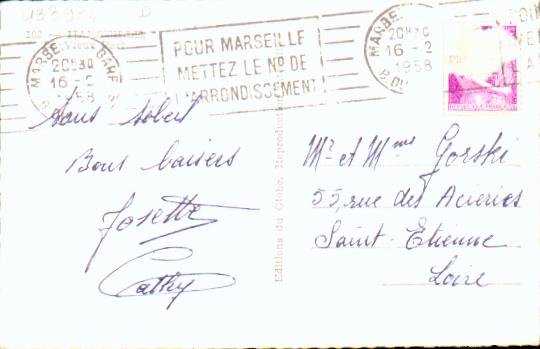 U3394 D
202 - MARSEILLE
MARSEILLE GARE
20H30
16-2
1958
POUR MARSEILLE
METTEZ LE No DE
L'ARRONDISSEMENT
MARSE
20H30
16-2
1958
B. DU
POUR
REPUBLIQUE FRANÇAISE
Sans
Bons baisers
Josette
Cathy
Editions du Globe. Reproduction
Mr et Mme Gorski
55, rue des Acieries
Saint-Etienne
Loire